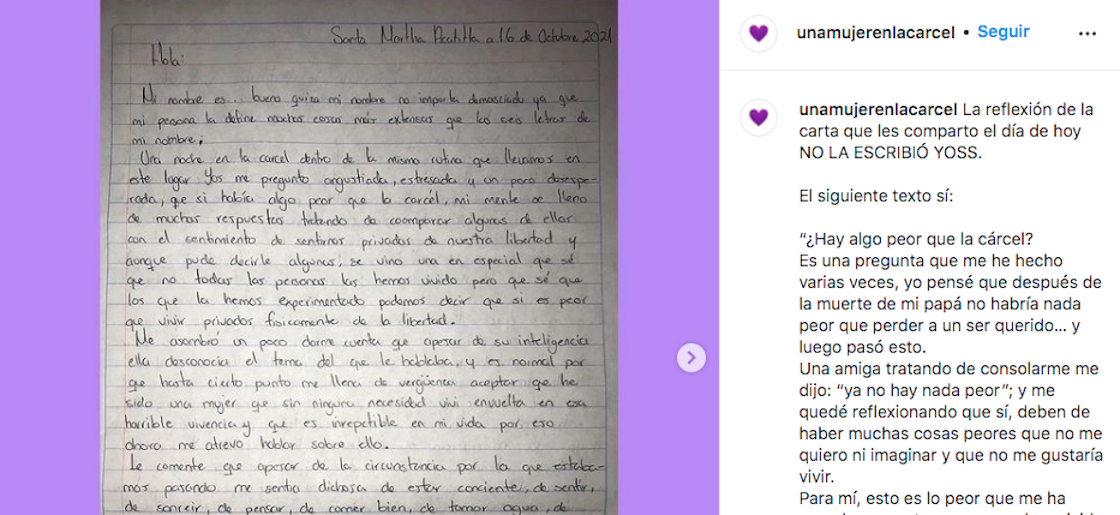 Santa Martha Acatitla a 16 de Octubre 2021
Hola:
Mi nombre es... bueno quiza mi nombre no importa demasiado ya que
mi persona la define muchas cosas más extensas que las seis letras de
mi nombre;
Una noche en la carcel dentro de la misma rutina que llevamos en
este lugar Yos me pregunto angustiada, estresada y un poco desespe-
rada, que si había algo peor que la carcél, mi mente se lleno
de muchas respuestas tratando de coomparar algunas de ellas
con el sentimiento de sentirnos privados de nuestra libertad y
aunque pude decirle algunas, se vino una en especial que sé
que no todas las personas las hemos vivido pero que sé que
los que la hemos experimentado podemos decir que si es peor
que vivir privados fisicamente de la libertad.
Me asombró un poco darme cuenta que apesar de su inteligencia
ella desconocia el tema del que le hablaba, y es normal por
que hasta cierto punto me llena de vergüenza aceptar que he
sido una mujer que sin ninguna necesidad vivi envuelta en esa
horrible vivencia y que es irrepetible en mi vida por eso
ahora me atrevo hablar sobre ello.
Le comente que apesar de la circunstancia por la que estaba-
mos pasando me sentia dichosa de estar conciente, de sentir,
de sonreir, de pensar, de comer bien, de tomar agua, de
unamujerenlacarcel • Seguir
unamujerenlacarcel La reflexión de la
carta que les comparto el día de hoy
NO LA ESCRIBIÓ YOSS.
El siguiente texto sí:
“¿Hay algo peor que la cárcel?
Es una pregunta que me he hecho
varias veces, yo pensé que después de
la muerte de mi papá no habría nada
peor que perder a un ser querido... y
luego pasó esto.
Una amiga tratando de consolarme me
dijo: “ya no hay nada peor”; y me
quedé reflexionando que sí, deben de
haber muchas cosas peores que no me
quiero ni imaginar y que no me gustaría
vivir.
Para mí, esto es lo peor que me ha